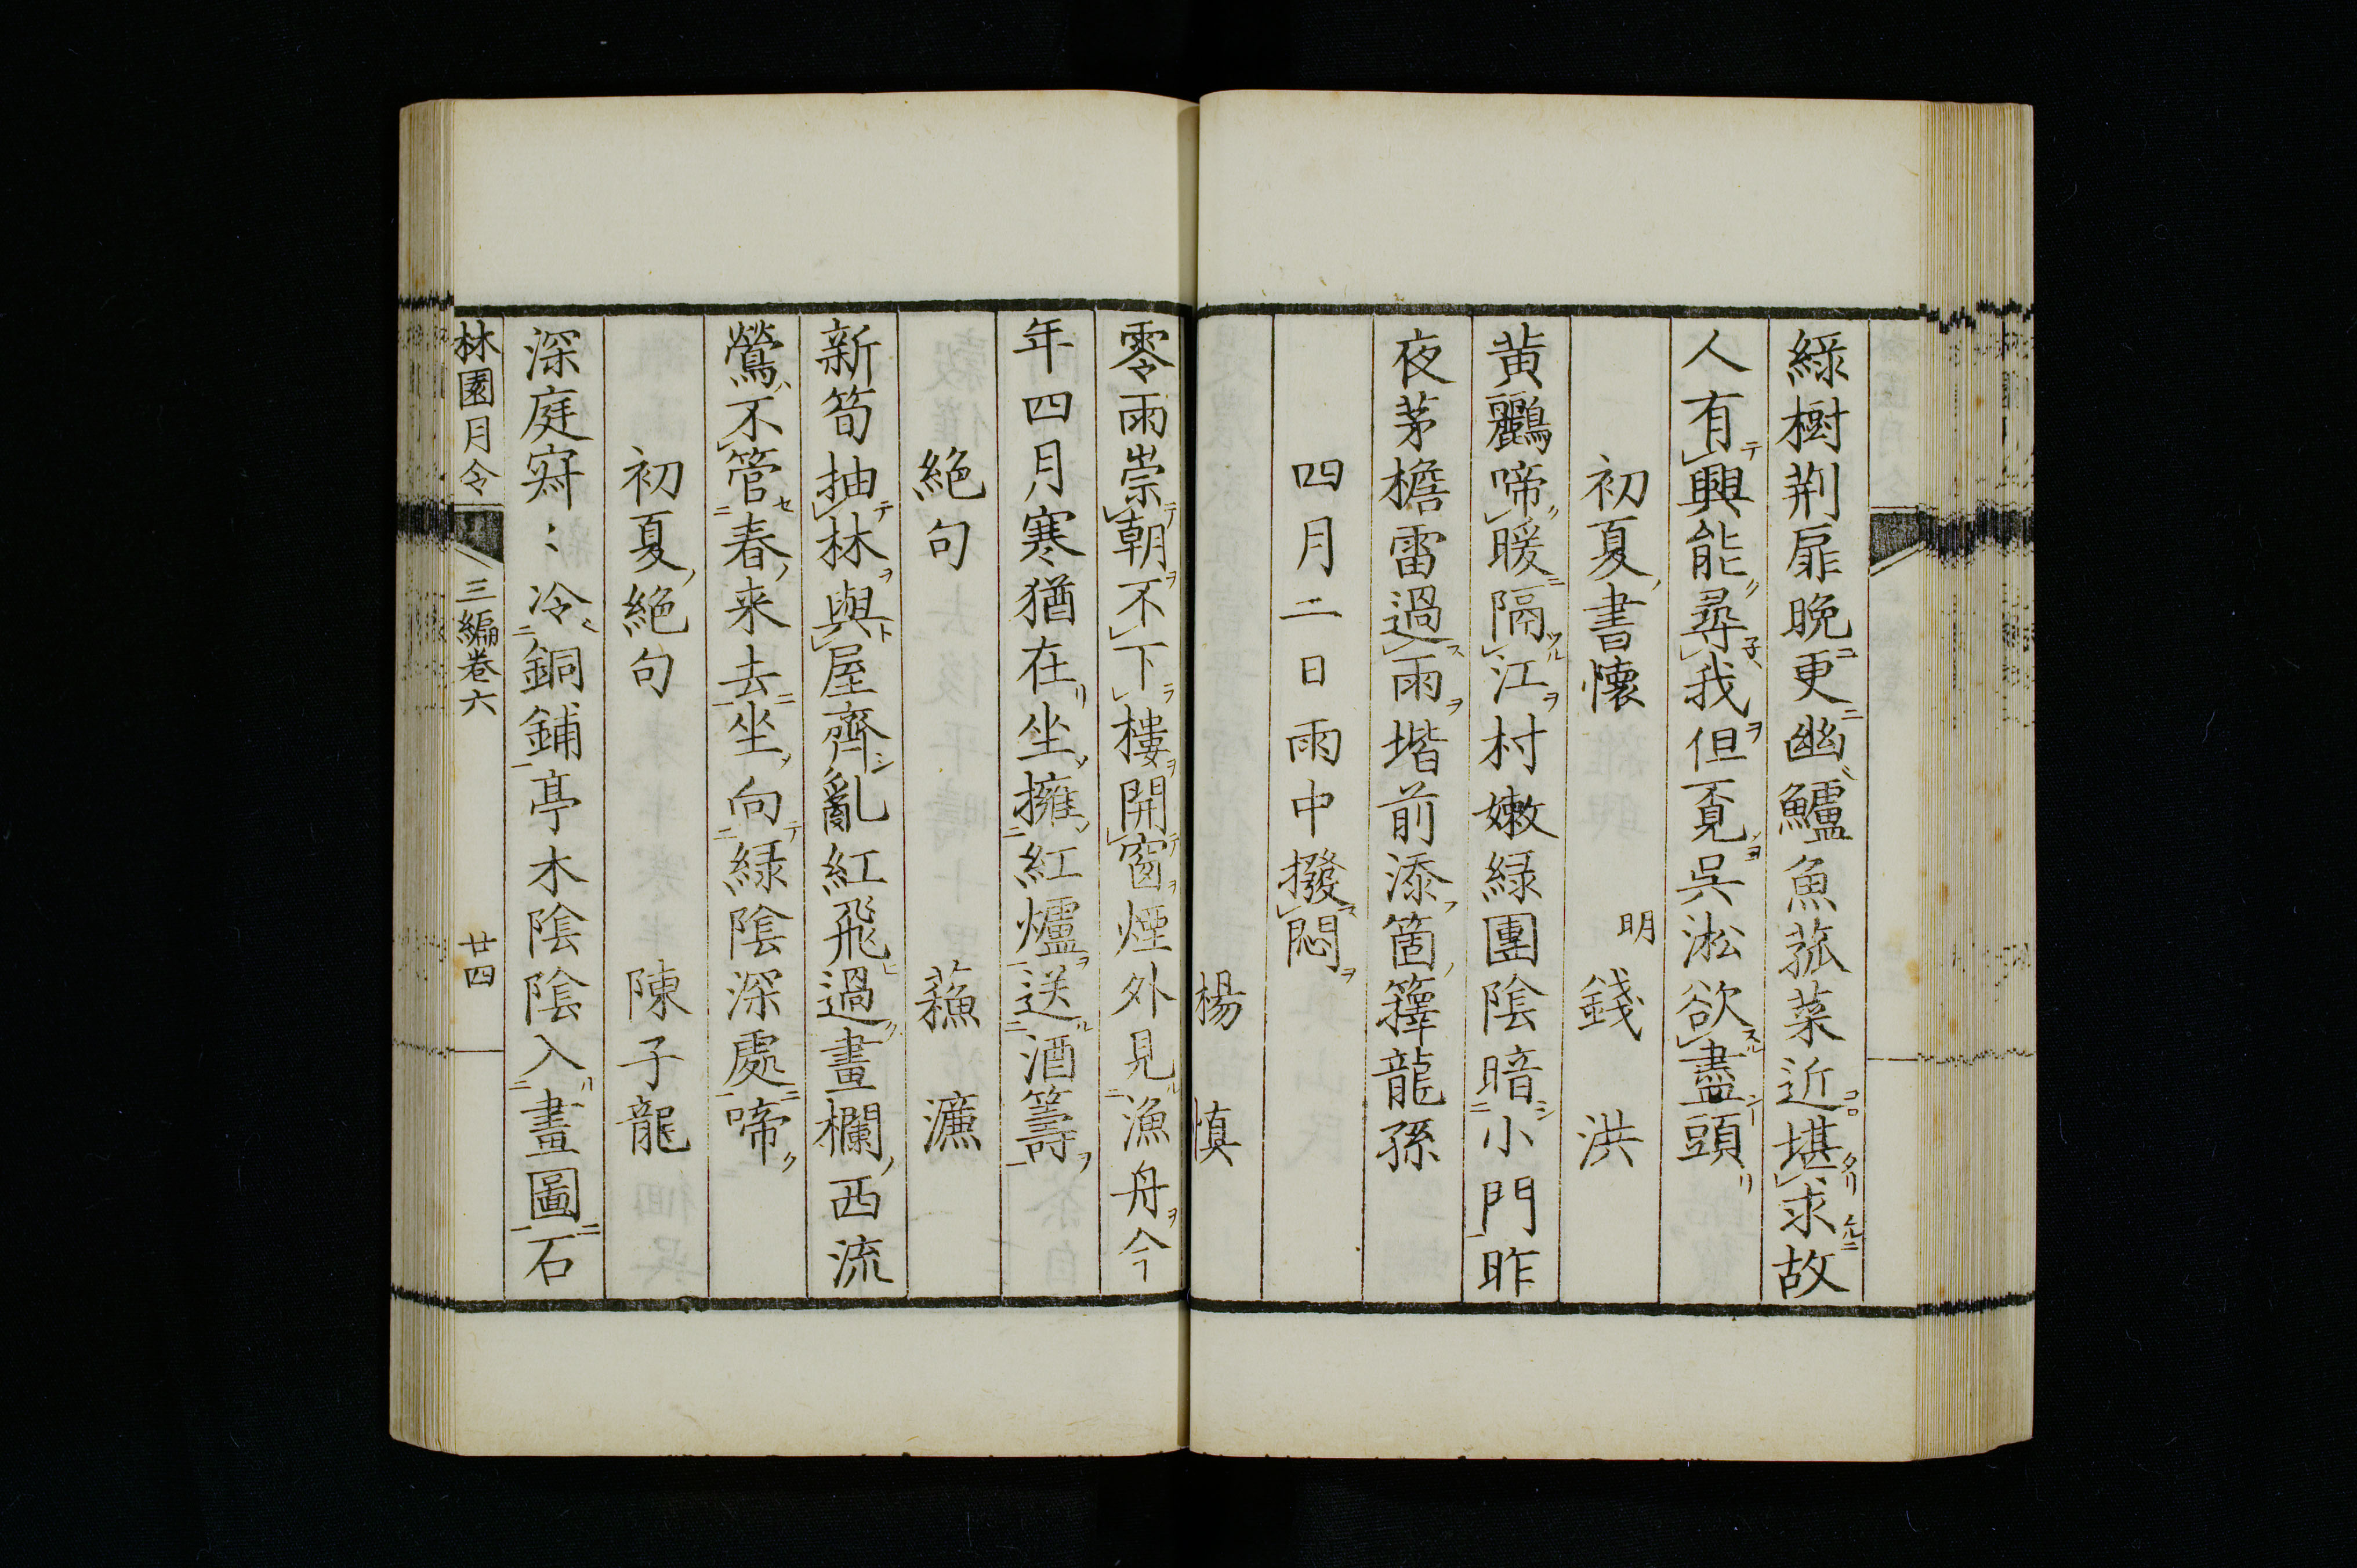 綠樹荆扉晚更幽鱸魚菰菜近堪求故
人有興能尋我但覔吳淞欲盡頭
初夏書懷　明　錢洪
黄鸝啼暖隔江村嫩緑團陰暗小門昨
夜茅檐雷過雨堦前添箇籜龍孫
四月二日雨中撥悶
楊慎
零雨崇朝不下樓開窗煙外見漁舟今
年四月寒猶在坐擁紅爐送酒籌
絶句　蘓濂
新筍抽林與屋齊亂紅飛過畫欄西流
鶯不管春来去坐向緑陰深處啼
初夏絶句　陳子龍
深庭寂〻冷銅鋪亭木陰陰入畫圖石
林園月令　三編卷六　廿四